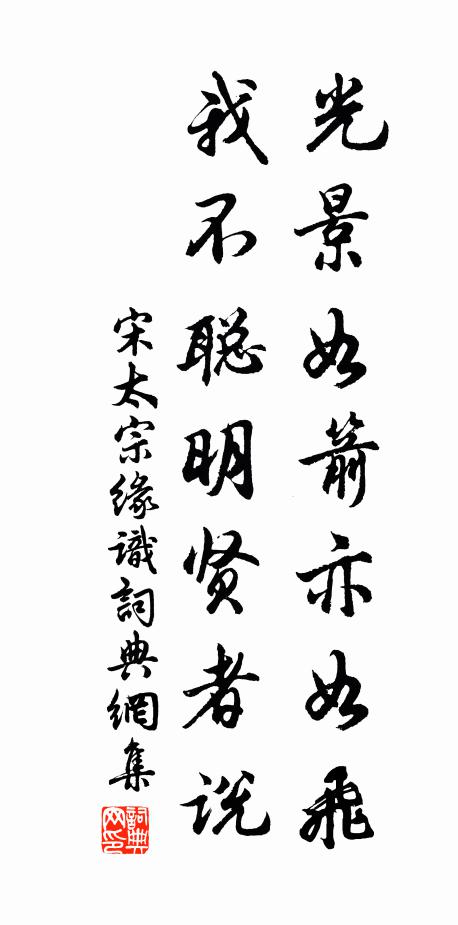 光景如箭亦如飛
我不聪明贤者说
宋太宗缘識詞典網集
詞典网印